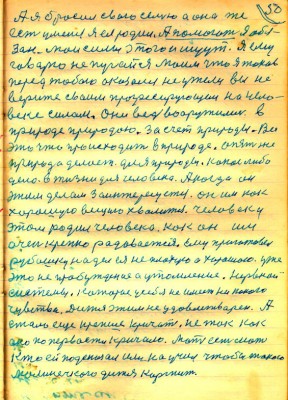 50
А я бросил свою семью а она же
есть у меня я ей родил. А помогать я обя-
зан. Мои семьи этого и ищут. Я ему
говорю не пугайся моим что я таков
перед тобою оказался неужели вы не
верите своим прогрессирующим на чело-
веке силам. Они ведь вооружились в
природе природою. За счет природы. Все
это что происходит в природе. опять же
природа делает для природы. Какое либо
дело в жизни для человека. А когда он
этим делам заинтересуется. он им как
хорошую вещью хвалится. человек у
этом родил человека. как он им
очень крепко радовается. Ему приготовил
рубашку надел ся не плохую а хорошую. уже
это не пробуждение а утомление. Нервной
системы. Которая у себя не имеет ни какого
чувства. Дитя этим не удовлетворен. А
стало еще крепче кричать. не так как
оно по первости кричало. Мать есть мать
кто ей подсказал или научил чтобы такого
маленького дитя кормит.